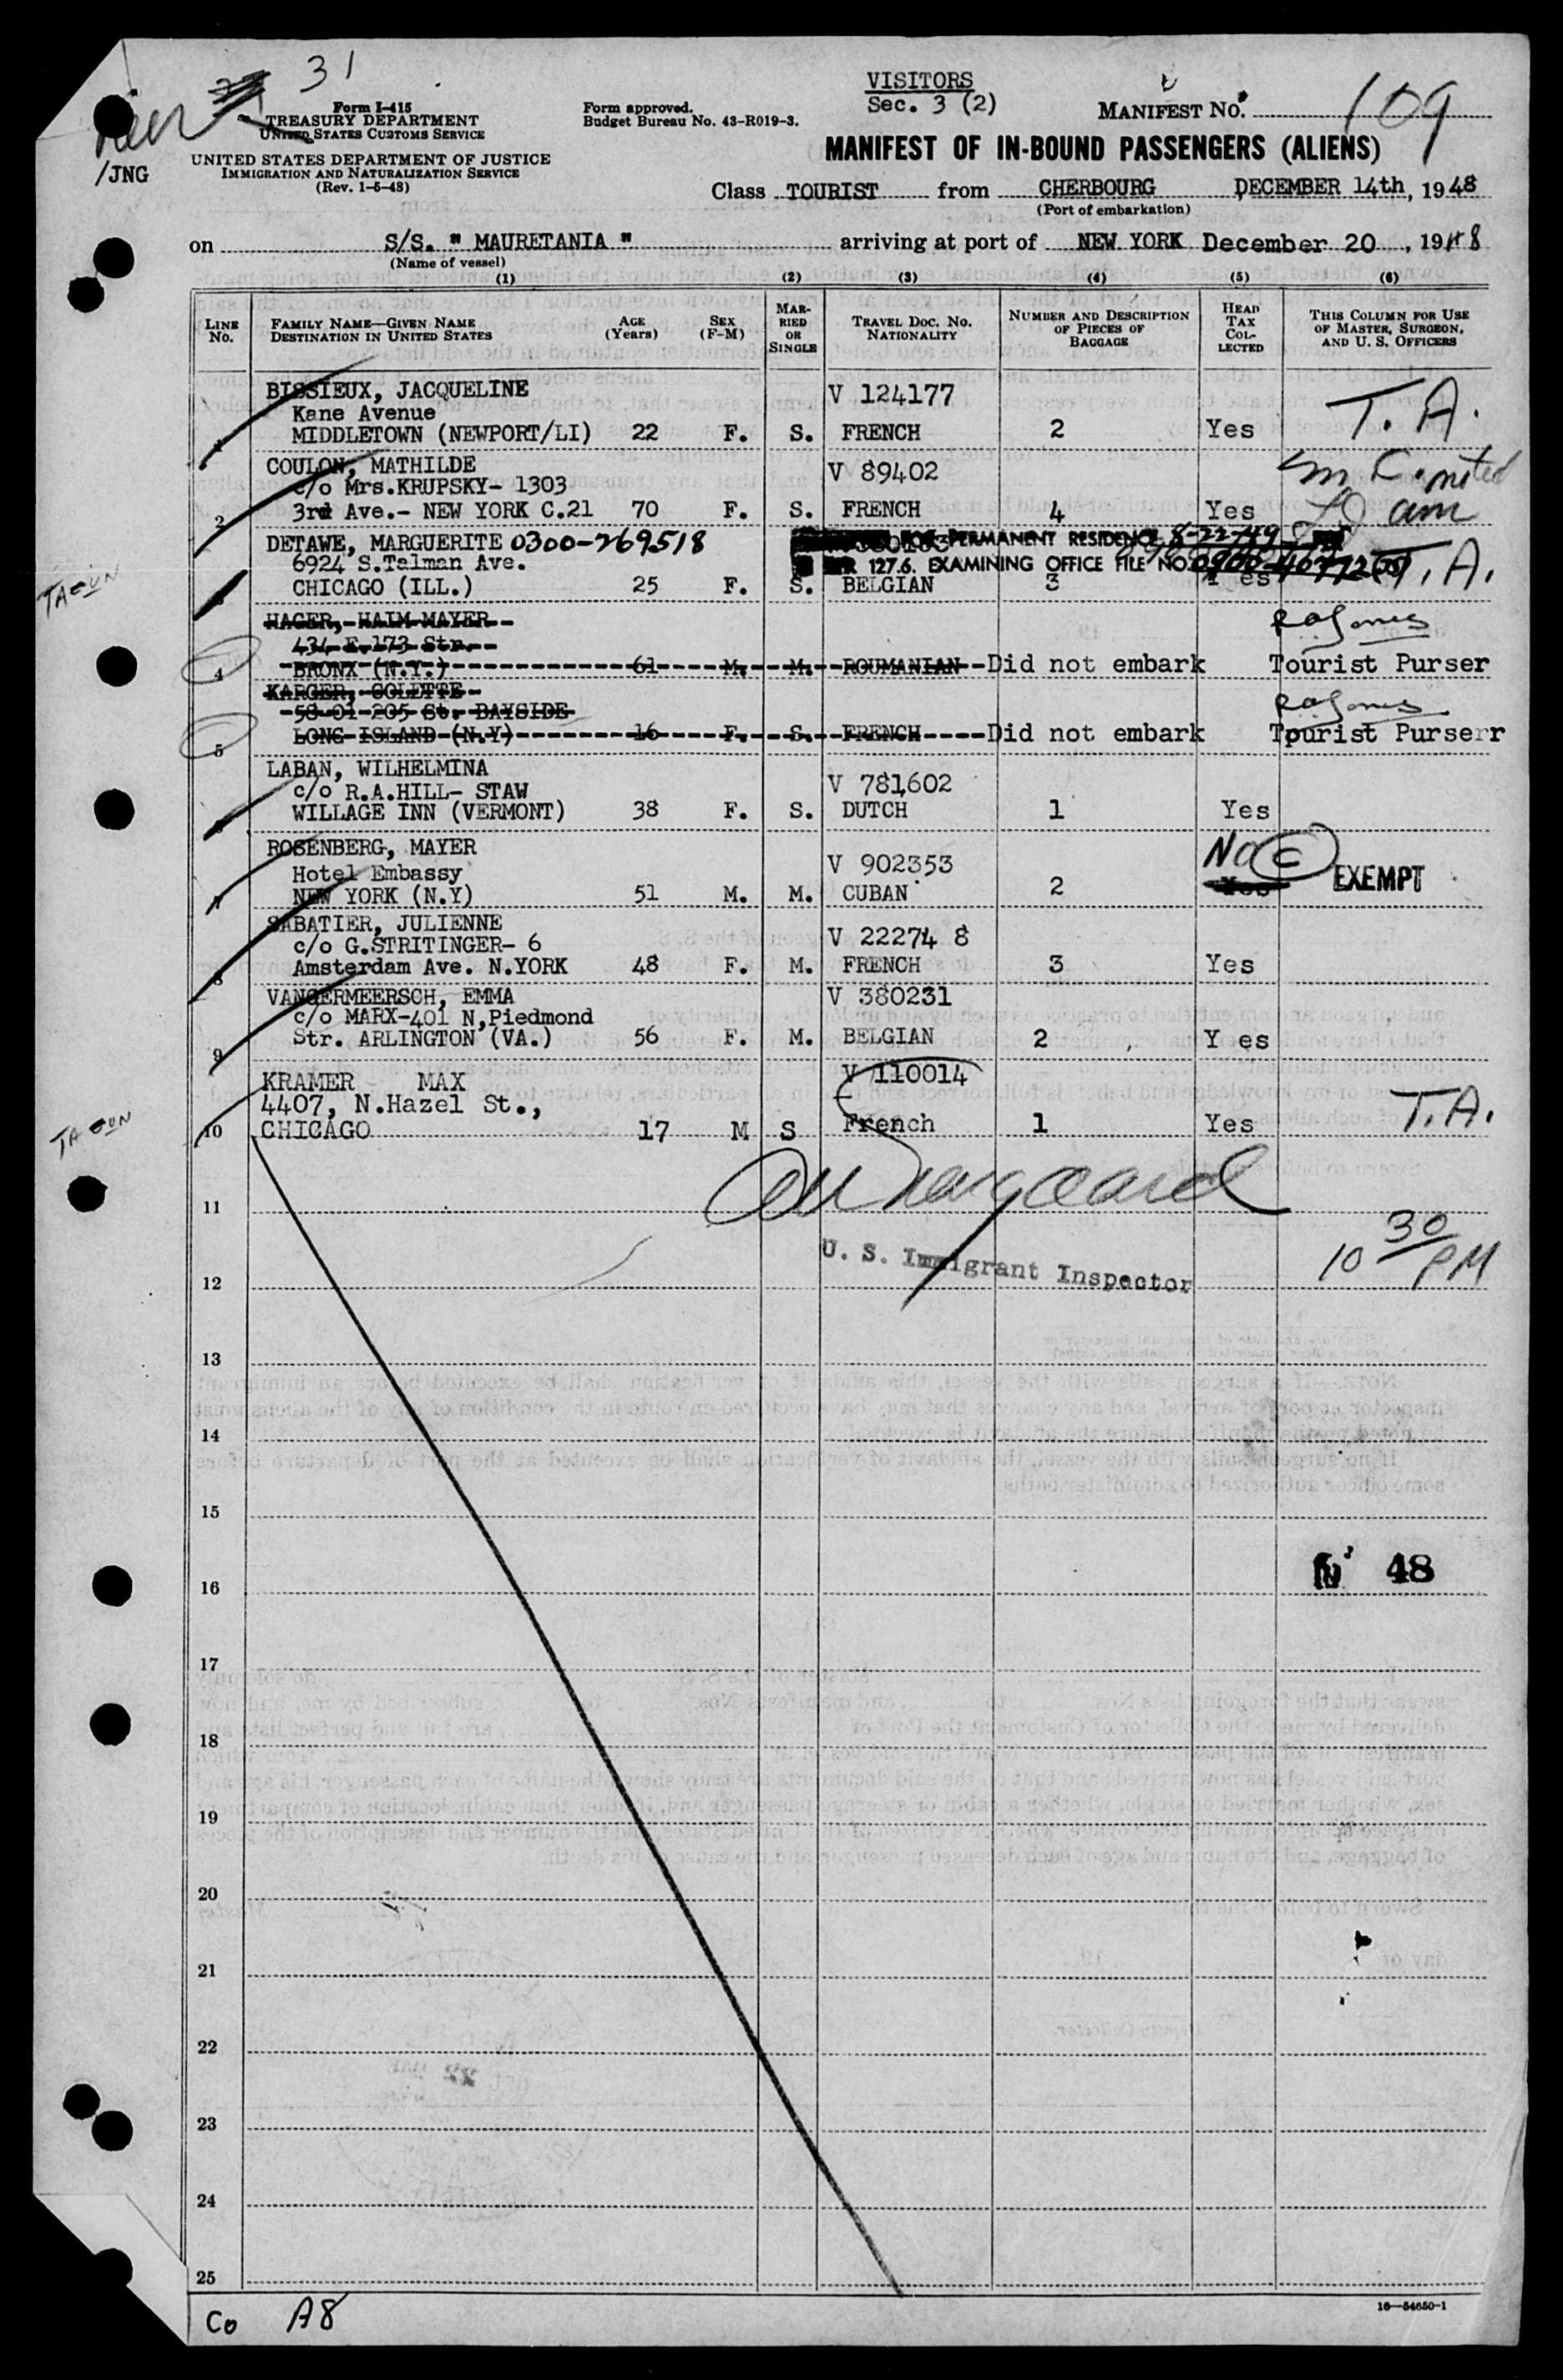 31
Form I-415
TREASURY DEPARTMENT
UNITED STATES CUSTOMS SERVICE
/JNG
UNITED STATES DEPARTMENT OF JUSTICE
IMMIGRATION AND NATURALIZATION SERVICE
(Rev. 1-5-48)
Form approved.
Budget Bureau No. 43-R019-3.
VISITORS
Sec. 3 (2)
MANIFEST NO. 109
MANIFEST OF IN-BOUND PASSENGERS (ALIENS)
Class TOURIST from CHERBOURG DECEMBER 14th, 1948
(Port of embarkation)
on S/S. " MAURETANIA " arriving at port of NEW YORK December 20, 1948
(Name of vessel)
(1) (2) (3) (4) (5) (6)
LINE No. FAMILY NAME—GIVEN NAME DESTINATION IN UNITED STATES AGE (Years) SEX (F-M) MARRIED OR SINGLE TRAVEL DOC. NO. NATIONALITY NUMBER AND DESCRIPTION OF PIECES OF BAGGAGE HEAD TAX COLLECTED THIS COLUMN FOR USE OF MASTER, SURGEON, AND U. S. OFFICERS
BISSIEUX, JACQUELINE V 124177 T. A.
Kane Avenue
1 MIDDLETOWN (NEWPORT/LI) 22 F. S. FRENCH 2 Yes
COULON, MATHILDE V 89402
c/o Mrs.KRUPSKY- 1303
2 3rd Ave.- NEW YORK C.21 70 F. S. FRENCH 4 Yes am
DETAWE, MARGUERITE 0300-269518 FOR PERMANENT RESIDENCE 8-22-49
6924 S.Talman Ave. 127.6. EXAMINING OFFICE FILE NO.
3 CHICAGO (ILL.) 25 F. S. BELGIAN 3 Yes T. A.
TA CON
HAGER, HAIM MAYER
434 E.173 Str.
4 BRONX (N.Y.) 61 M. M. ROUMANIAN Did not embark Tourist Purser
KARGER, COLETTE
58-01-205 St. BAYSIDE
5 LONG ISLAND (N.Y) 16 F. S. FRENCH Did not embark Tpurist Purserr
LABAN, WILHELMINA
c/o R.A.HILL- STAW V 781602
6 WILLAGE INN (VERMONT) 38 F. S. DUTCH 1 Yes
ROSENBERG, MAYER No C
Hotel Embassy V 902353
7 NEW YORK (N.Y) 51 M. M. CUBAN 2 Yes EXEMPT
SABATIER, JULIENNE
c/o G.STRITINGER- 6 V 22274 8
8 Amsterdam Ave. N.YORK 48 F. M. FRENCH 3 Yes
VANGERMEERSCH, EMMA V 380231
c/o MARX-401 N,Piedmond
9 Str. ARLINGTON (VA.) 56 F. M. BELGIAN 2 Y es
KRAMER MAX V 110014
4407, N.Hazel St.,
10 CHICAGO 17 M S French 1 Yes T.A.
TA CON
11
U. S. Immigrant Inspector
10 30 PM
12
13
14
15
16 48
17
18
19
20
21
22
23
24
25
Co A8
16—54650-1